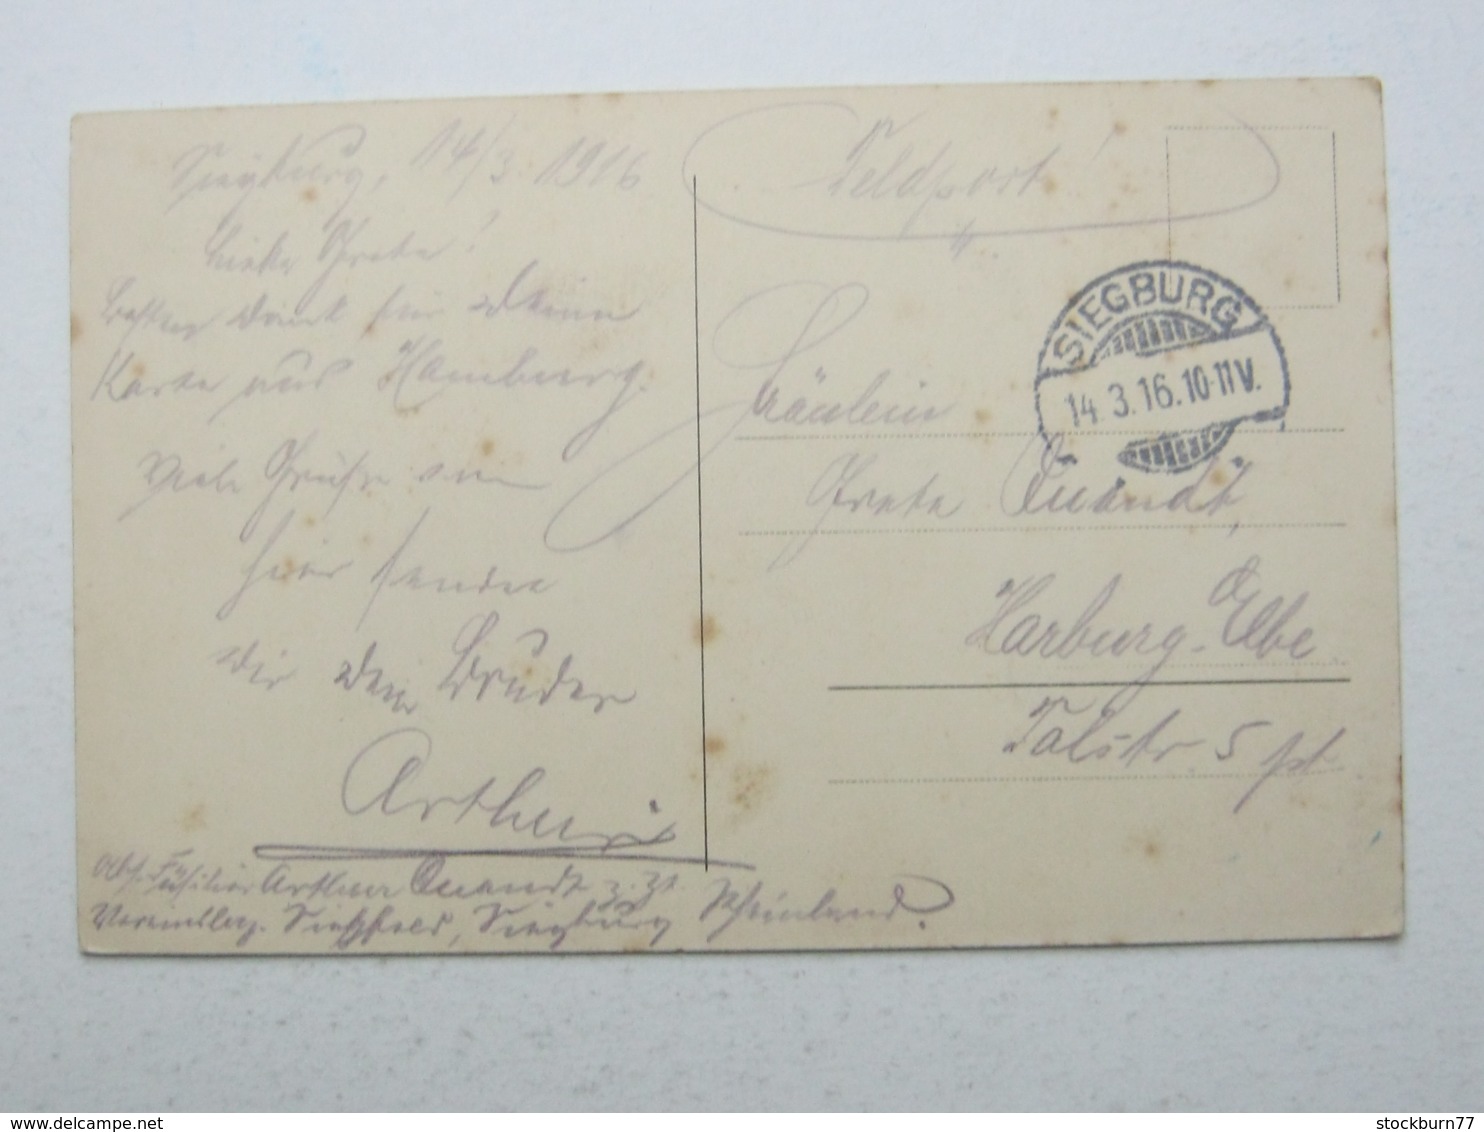 Siegburg, 14/3. 1916
Liebe Grete!
Besten Dank für Deine
Karte aus Hamburg.
Viele Grüße von
hier sendet
Dir Dein Bruder
Arthur
Abs. Füsilier Arthur Quandt z. Zt.
Siegburg Rheinland.
Feldpost!
SIEGBURG
14.3.16.10-11V.
Fräulein
Grete Quandt,
Harburg-Elbe
Talstr. 5 pt.
www.delcampe.net
stockburn77